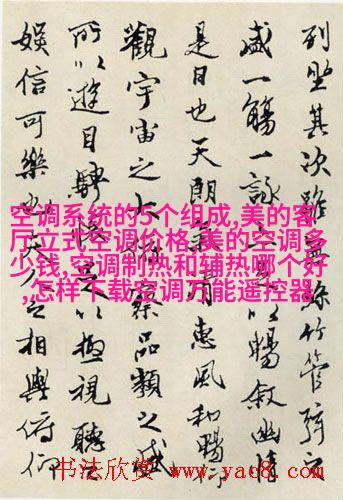 列坐其次雖無絲竹管弦之
盛一觴一詠以暢敘幽情
是日也天朗氣清惠風和暢仰
觀宇宙之大俯察品類之盛
所以遊目騁懷足以極視聽之
娛信可樂也夫人之相與俯仰
空调系统的5个组成,美的客
厅立式空调价格,美的空调多
少钱,空调制热和辅热哪个好
,怎样下载空调万能遥控器
书法欣赏 www.yac8.com